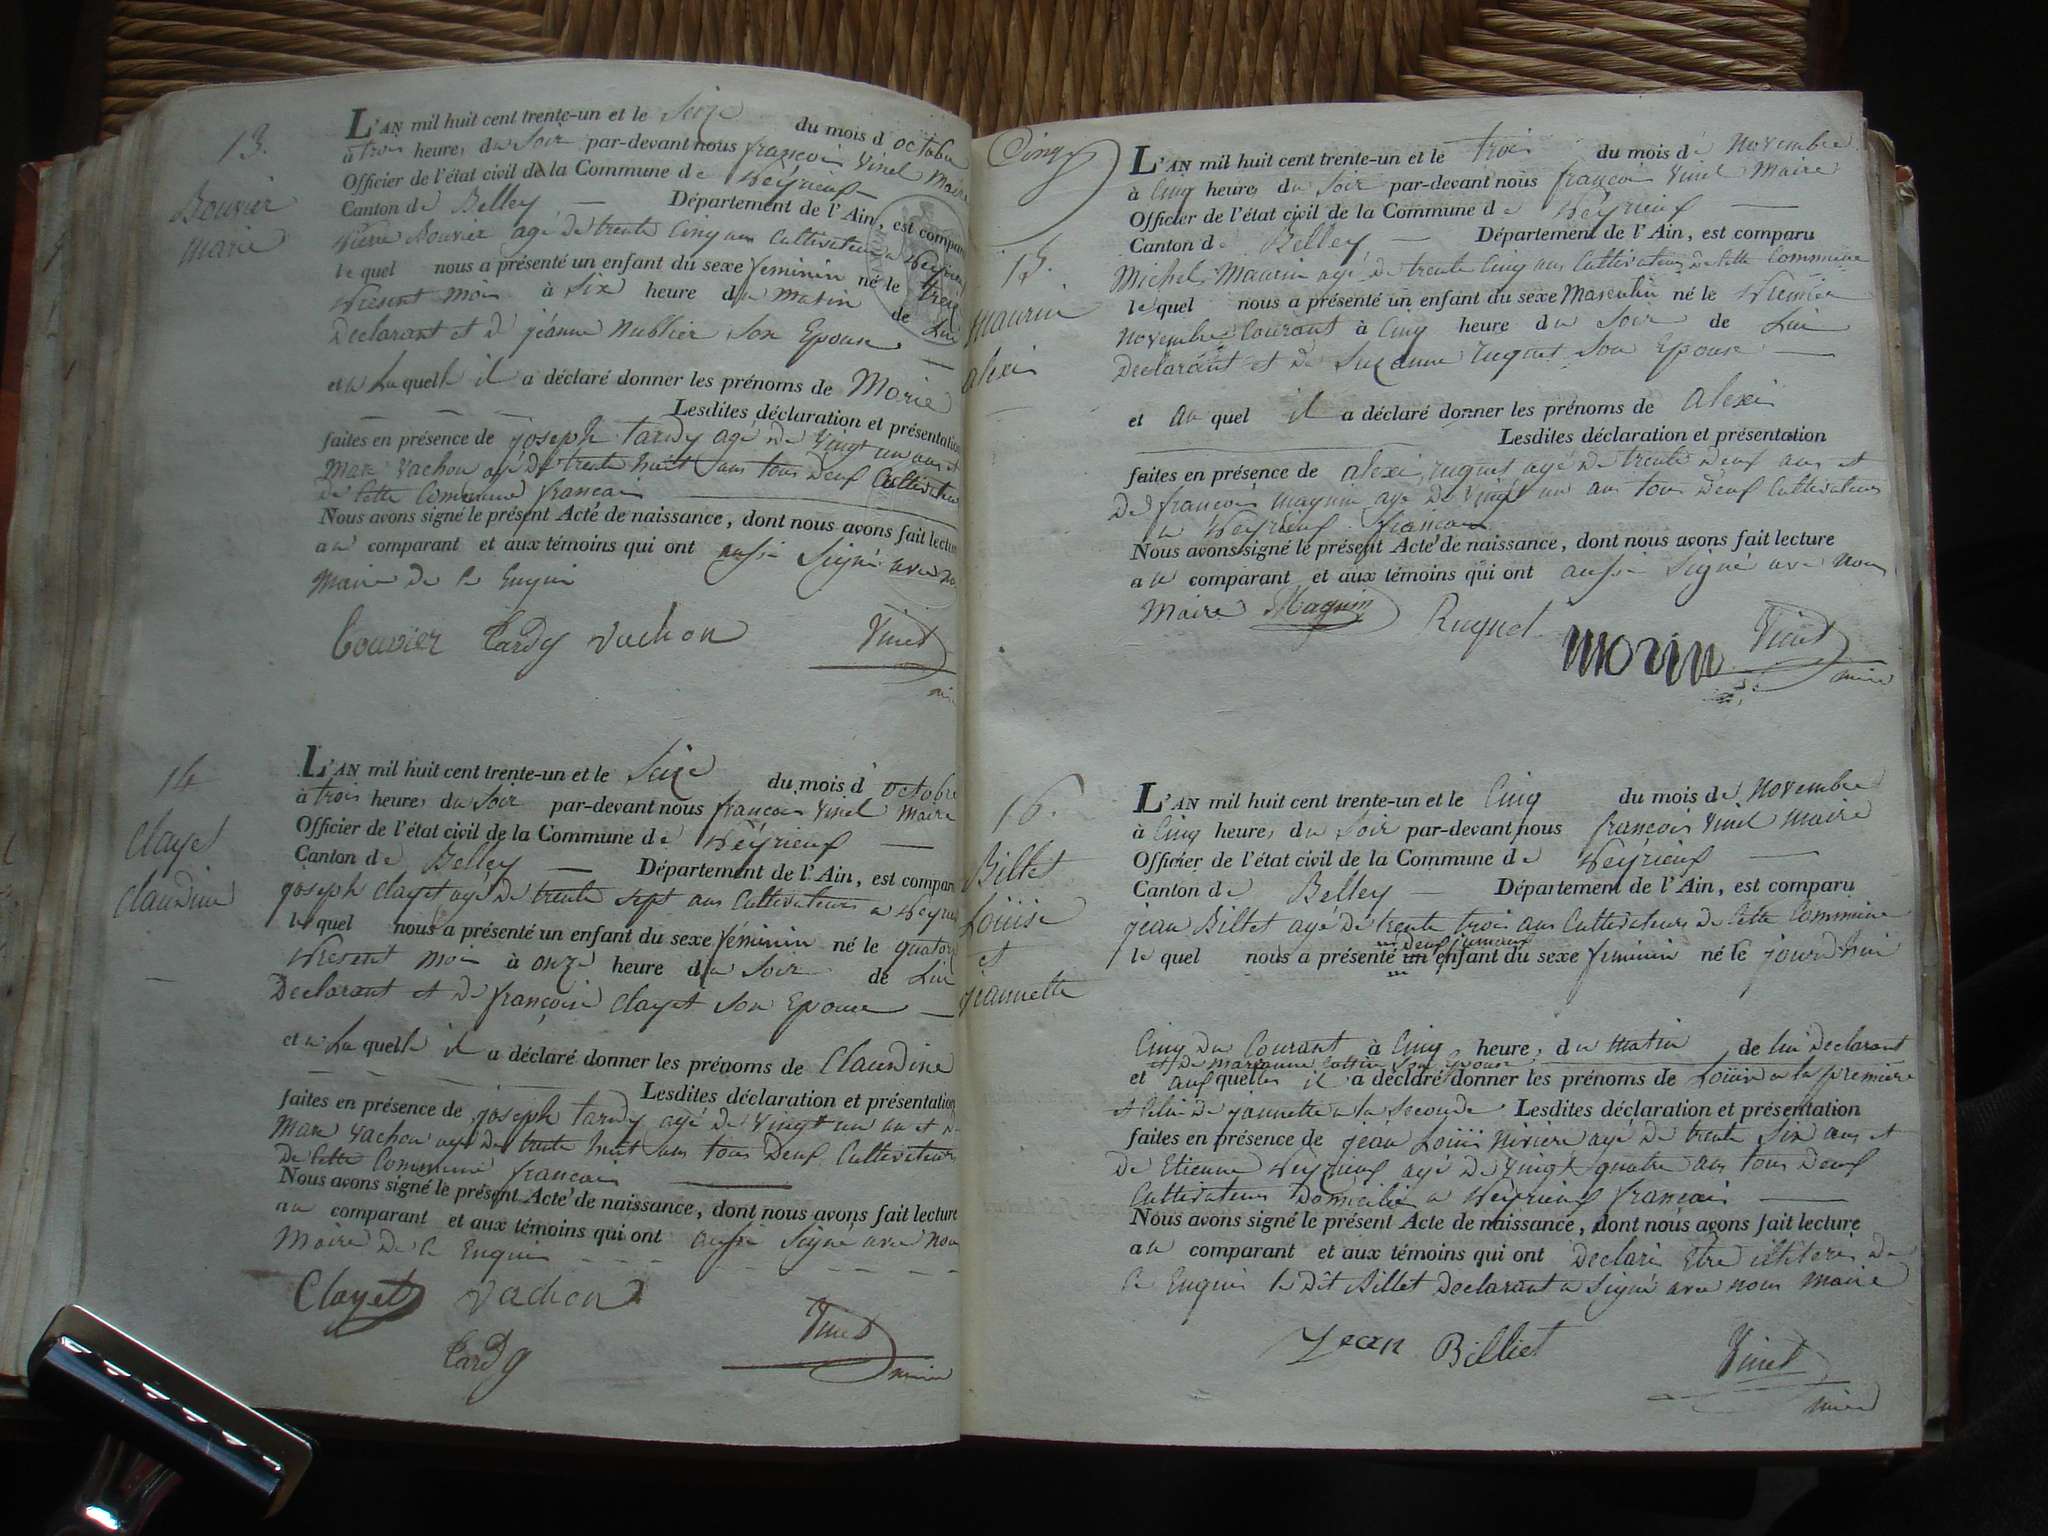 13.
Bouvier
marie
L'AN mil huit cent trente-un et le Seize du mois d octobre
à trois heures du Soir par-devant nous francois Vinet Maire
Officier de l'état civil de la Commune de Peÿrieux
Canton de Belley — Département de l'Ain, est comparu
Pierre Bouvier agé de trente Cinq ans Cultivateur a Peÿrieux
le quel nous a présenté un enfant du sexe feminin né le treize
Present mois à Six heure du matin de Lui
Declarant et de jéanne Son Epouse
et a La quelle il a déclaré donner les prénoms de Marie
Lesdites déclaration et présentation
faites en présence de joseph tardy agé de Vingt un ans et
Marc Vachon agé de trente huit ans tous Deux Cultivateurs
de Cette Commune francais
Nous avons signé le présent Acte de naissance, dont nous avons fait lecture
au comparant et aux témoins qui ont aussi Signé avec nous
Maire De ce Enquis
Bouvier tardy vachon Vinet
14
Clayet
Claudine
L'AN mil huit cent trente-un et le Seize du mois d' octobre
à trois heures du Soir par-devant nous francois Vinet Maire
Officier de l'état civil de la Commune de Peÿrieux —
Canton de Belley — Département de l'Ain, est comparu
joseph Clayet agé de trente sept ans Cultivateurs a Peyrieux
le quel nous a présenté un enfant du sexe féminin né le quatorze
Present mois à onze heure du Soir de Lui
Declarant et de françoise Clayet Son Epouse —
et a La quelle il a déclaré donner les prénoms de Claudine
Lesdites déclaration et présentation
faites en présence de joseph tardy agé de Vingt un an et de
Marc Vachon agé de trente huit ans tous Deux Cultivateurs
de Cette Commune francais
Nous avons signé le présent Acte de naissance, dont nous avons fait lecture
au comparant et aux témoins qui ont aussi Signé avec nous
Maire De ce Enquis
Clayet vachon Vinet
tardy maire
Cinq
15.
maurin
alexi
L'AN mil huit cent trente-un et le trois du mois de Novembre
à Cinq heures du Soir par-devant nous francois Vinet Maire
Officier de l'état civil de la Commune de Peÿrieux —
Canton de Belley — Département de l'Ain, est comparu
Michel Maurin agé de trente Cinq ans Cultivateurs de Cette Commune
le quel nous a présenté un enfant du sexe Masculin né le Premier
Novembre Courant à Cinq heure du Soir de Lui
Declarant et de Suzanne ruguet Son Epouse —
et au quel il a déclaré donner les prénoms de alexi
Lesdites déclaration et présentation
faites en présence de alexi ruguet agé de trente deux ans et
De francois maguin agé de Vingt un ans tous Deux Cultivateurs
a Peÿrieux francais
Nous avons signé le présent Acte de naissance, dont nous avons fait lecture
au comparant et aux témoins qui ont aussi Signé avec nous
Maire Maguin Ruguet morin Vinet
maire
16.
Billet
Loüise
et
jeannette
L'AN mil huit cent trente-un et le Cinq du mois de Novembre
à Cinq heures du Soir par-devant nous francois Vinet Maire
Officier de l'état civil de la Commune de Peÿrieux —
Canton de Belley — Département de l'Ain, est comparu
jean Billet agé de trente trois ans Cultivateurs de Cette Commune
deux jumeaux
le quel nous a présenté un enfant du sexe feminin né le jourdhui
Cinq du Courant à Cinq heures du matin de lui Declarant
et de marianne Son Epouse
et auxquelles il a déclaré donner les prénoms de Loüise a la premiere
et Celui de jannette a la Seconde Lesdites déclaration et présentation
faites en présence de jéan Loüis riviere agé de trente Six ans et
De Etienne Peÿrieux agé de Vingt quatre ans tous Deux
Cultivateurs Domicilié a Peÿrieux francais —
Nous avons signé le présent Acte de naissance, dont nous avons fait lecture
au comparant et aux témoins qui ont Declaré Etre illiteré De
ce Enquis le Dit Billet Declarant a Signé avec nous Maire
Jean Billiet Vinet
maire